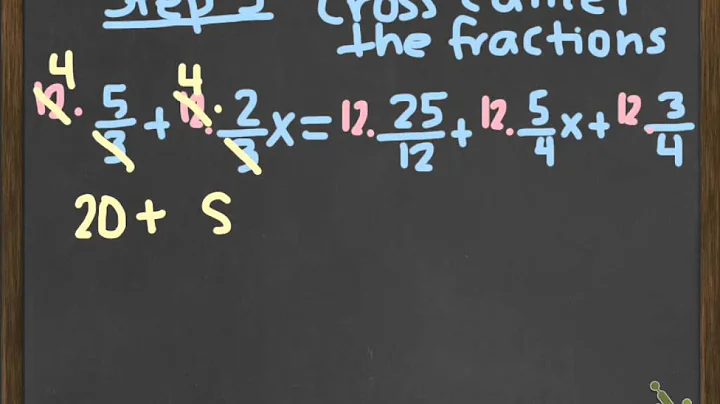 Step 3 Cross cancel
the fractions
4 4
12 · 5/3 + 12 · 2/3 x = 12 · 25/12 + 12 · 5/4 x + 12 · 3/4
20 + S